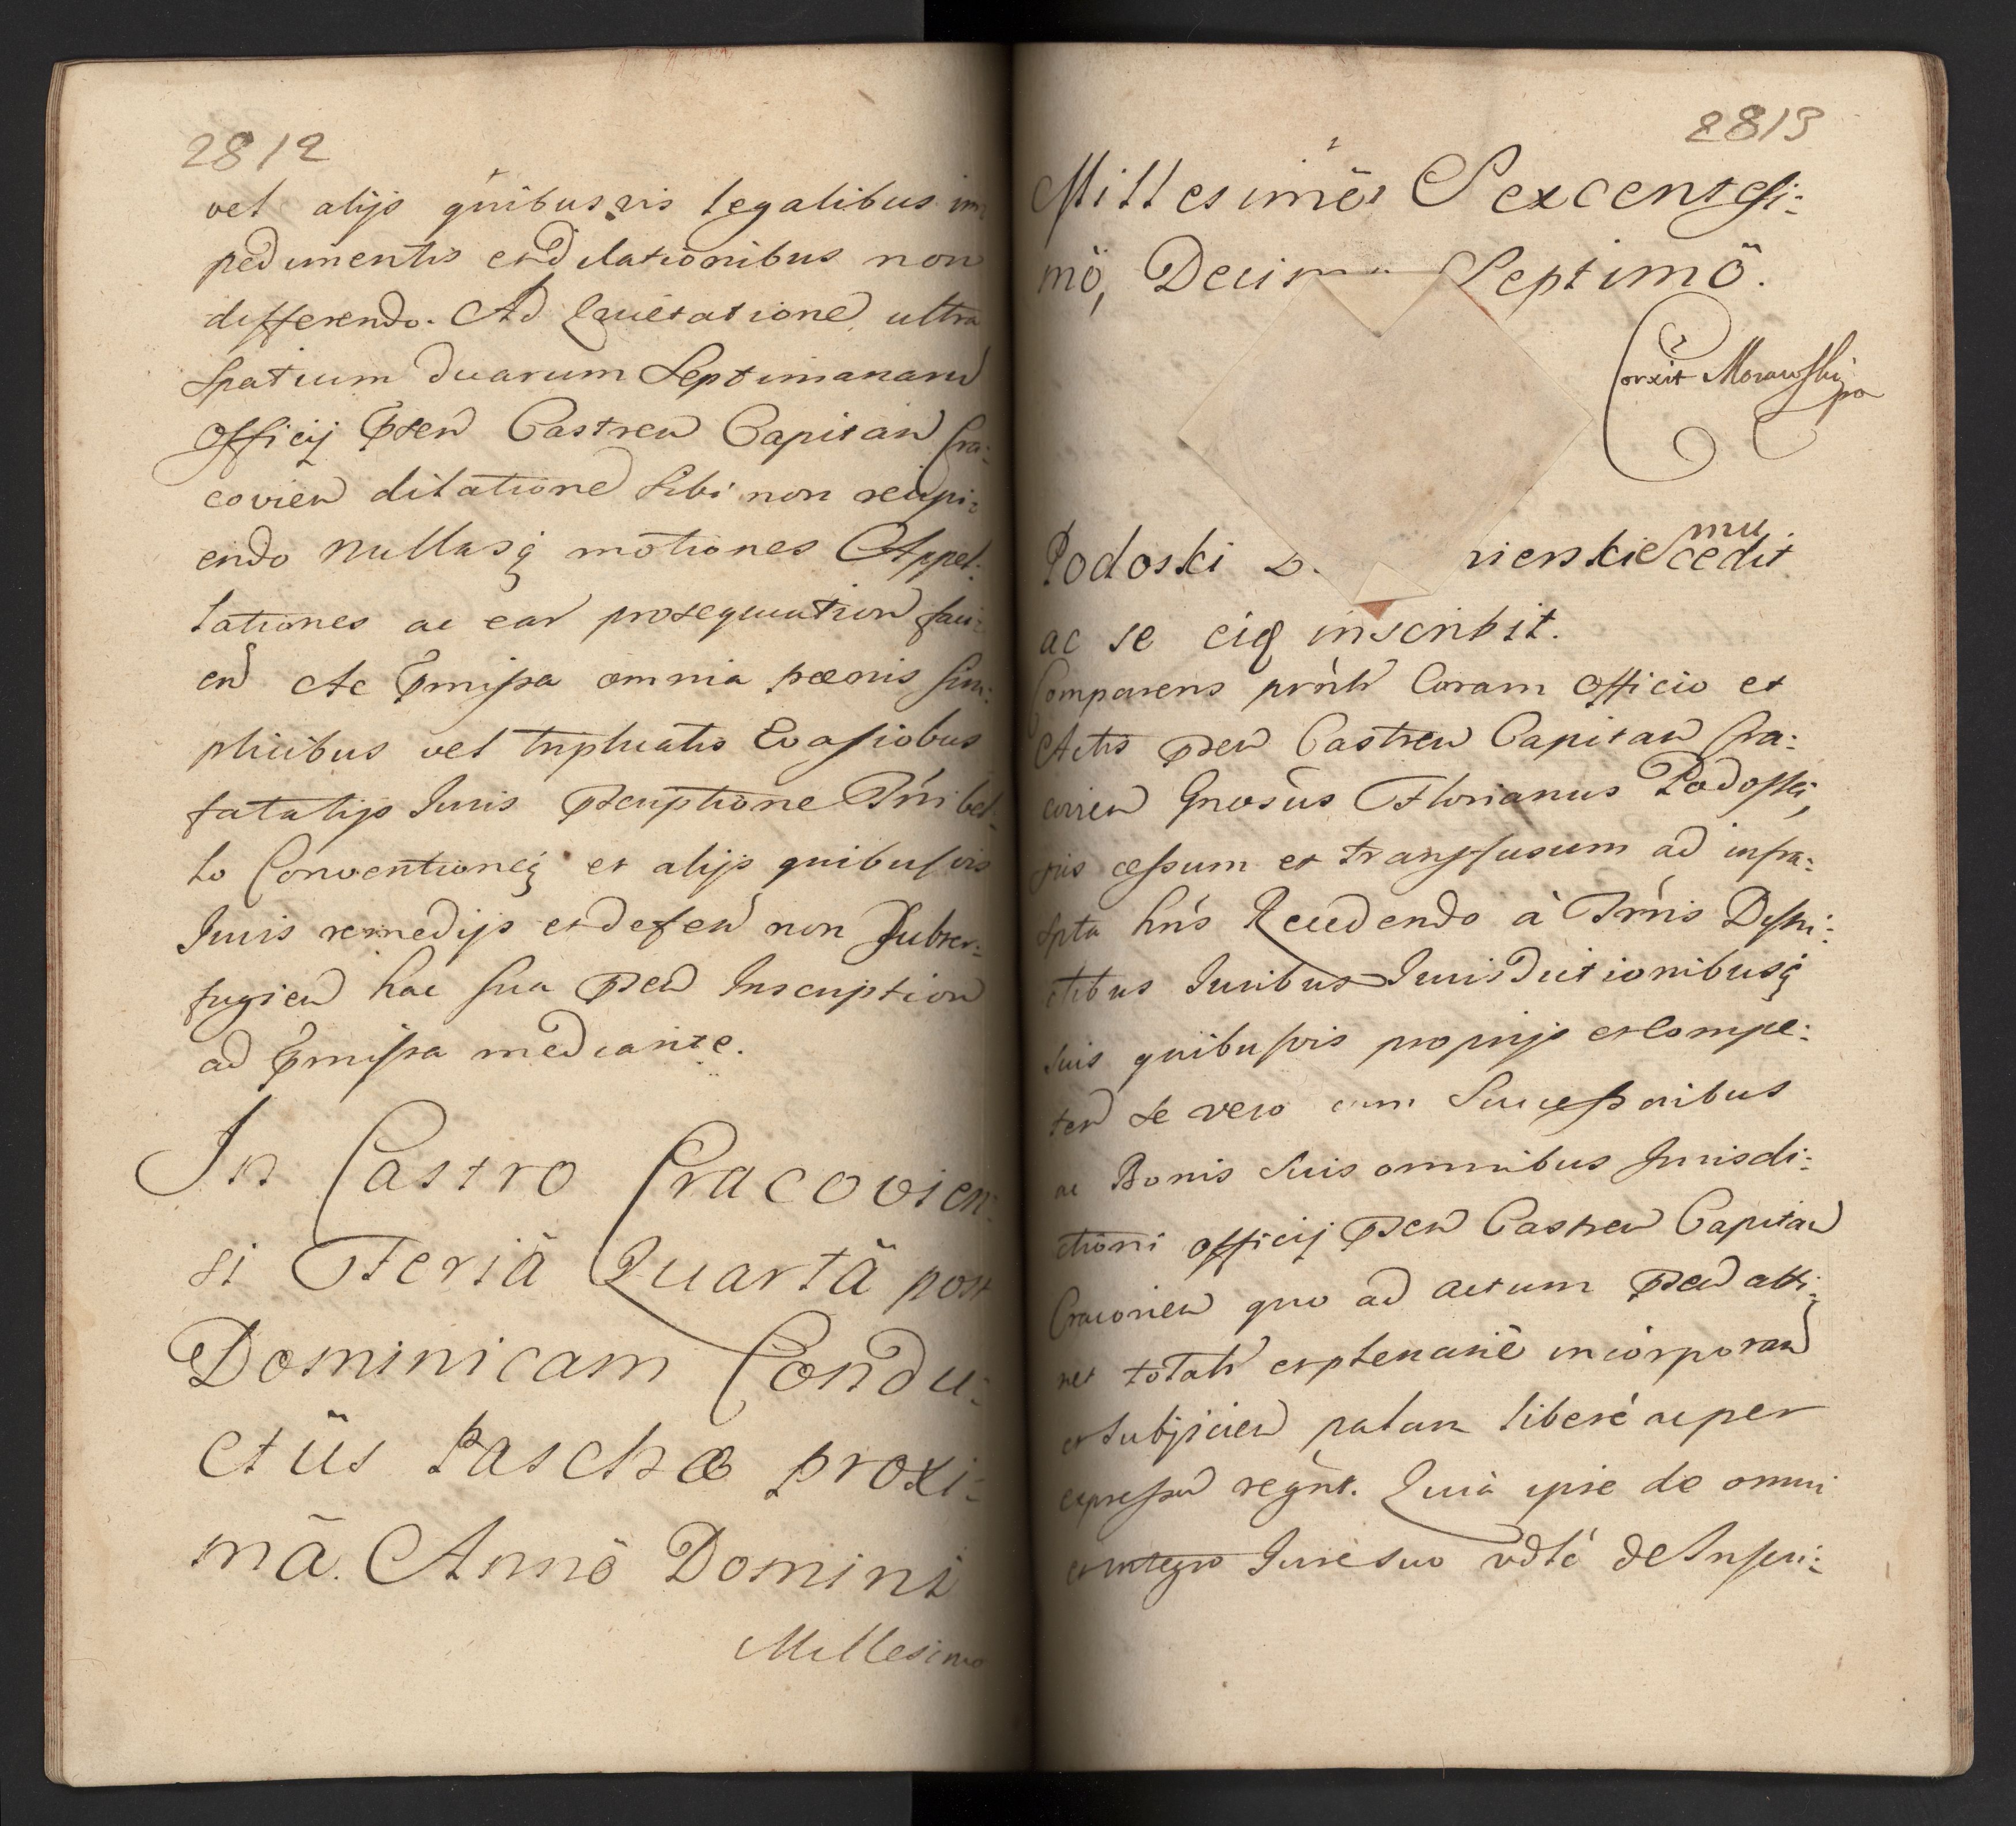 2812
vel alijs quibusvis legalibus im
pedimentis et dilationibus non
differendo. Ad Quietatione ultra
Spatium duarum Septimanaru
Officij pten Castren Capitan Cra:
covien dilatione Sibi non recipi:
endo nullasq motiones Appel:
lationes ac ear prosequution faci:
en Ac pmissa omnia poenis sim:
plicibus vel triplicatis Evasiobus
fatalijs Iuris pscriptione Trri bel:
lo Conventioneq et alijs quibusvis
Iuris remedijs et defen non Subter:
fugien hac sua pten Inscription
ad pmissa mediante.
In Castro Cracovien:
si Feriâ Quartâ post
Dominicam Condu:
ctûs Paschæ proxi:
mâ. Annô Domini
Millesimo
2813
Millesimô Sexcentesi:
mô, Decim Septimô.
Corxit Morawski
Podoski nierskiemu cedit
ac se eiq inscribit.
Comparens prnlr Coram Officio et
Actis pten Castren Capitan Cra:
covien Gnosus Florianus Podoski,
ris cessum et transfusum ad infra:
spta hns Recedendo à Trris Distri:
ctibus Iuribus Iurisdictionibusq
suis quibusvis proprijs et Compe:
ten Se vero cum Successoribus
ac Bonis Suis omnibus Iurisdi:
ctioni officij pten Castren Capitan
Cracovien quo ad actum pten atti:
net totalr et plenariè incorporan
et Subijcien palam liberè ac per
expressu regnt. Quia ipse de omni
et integro Iure suo vdlt de Inscri: